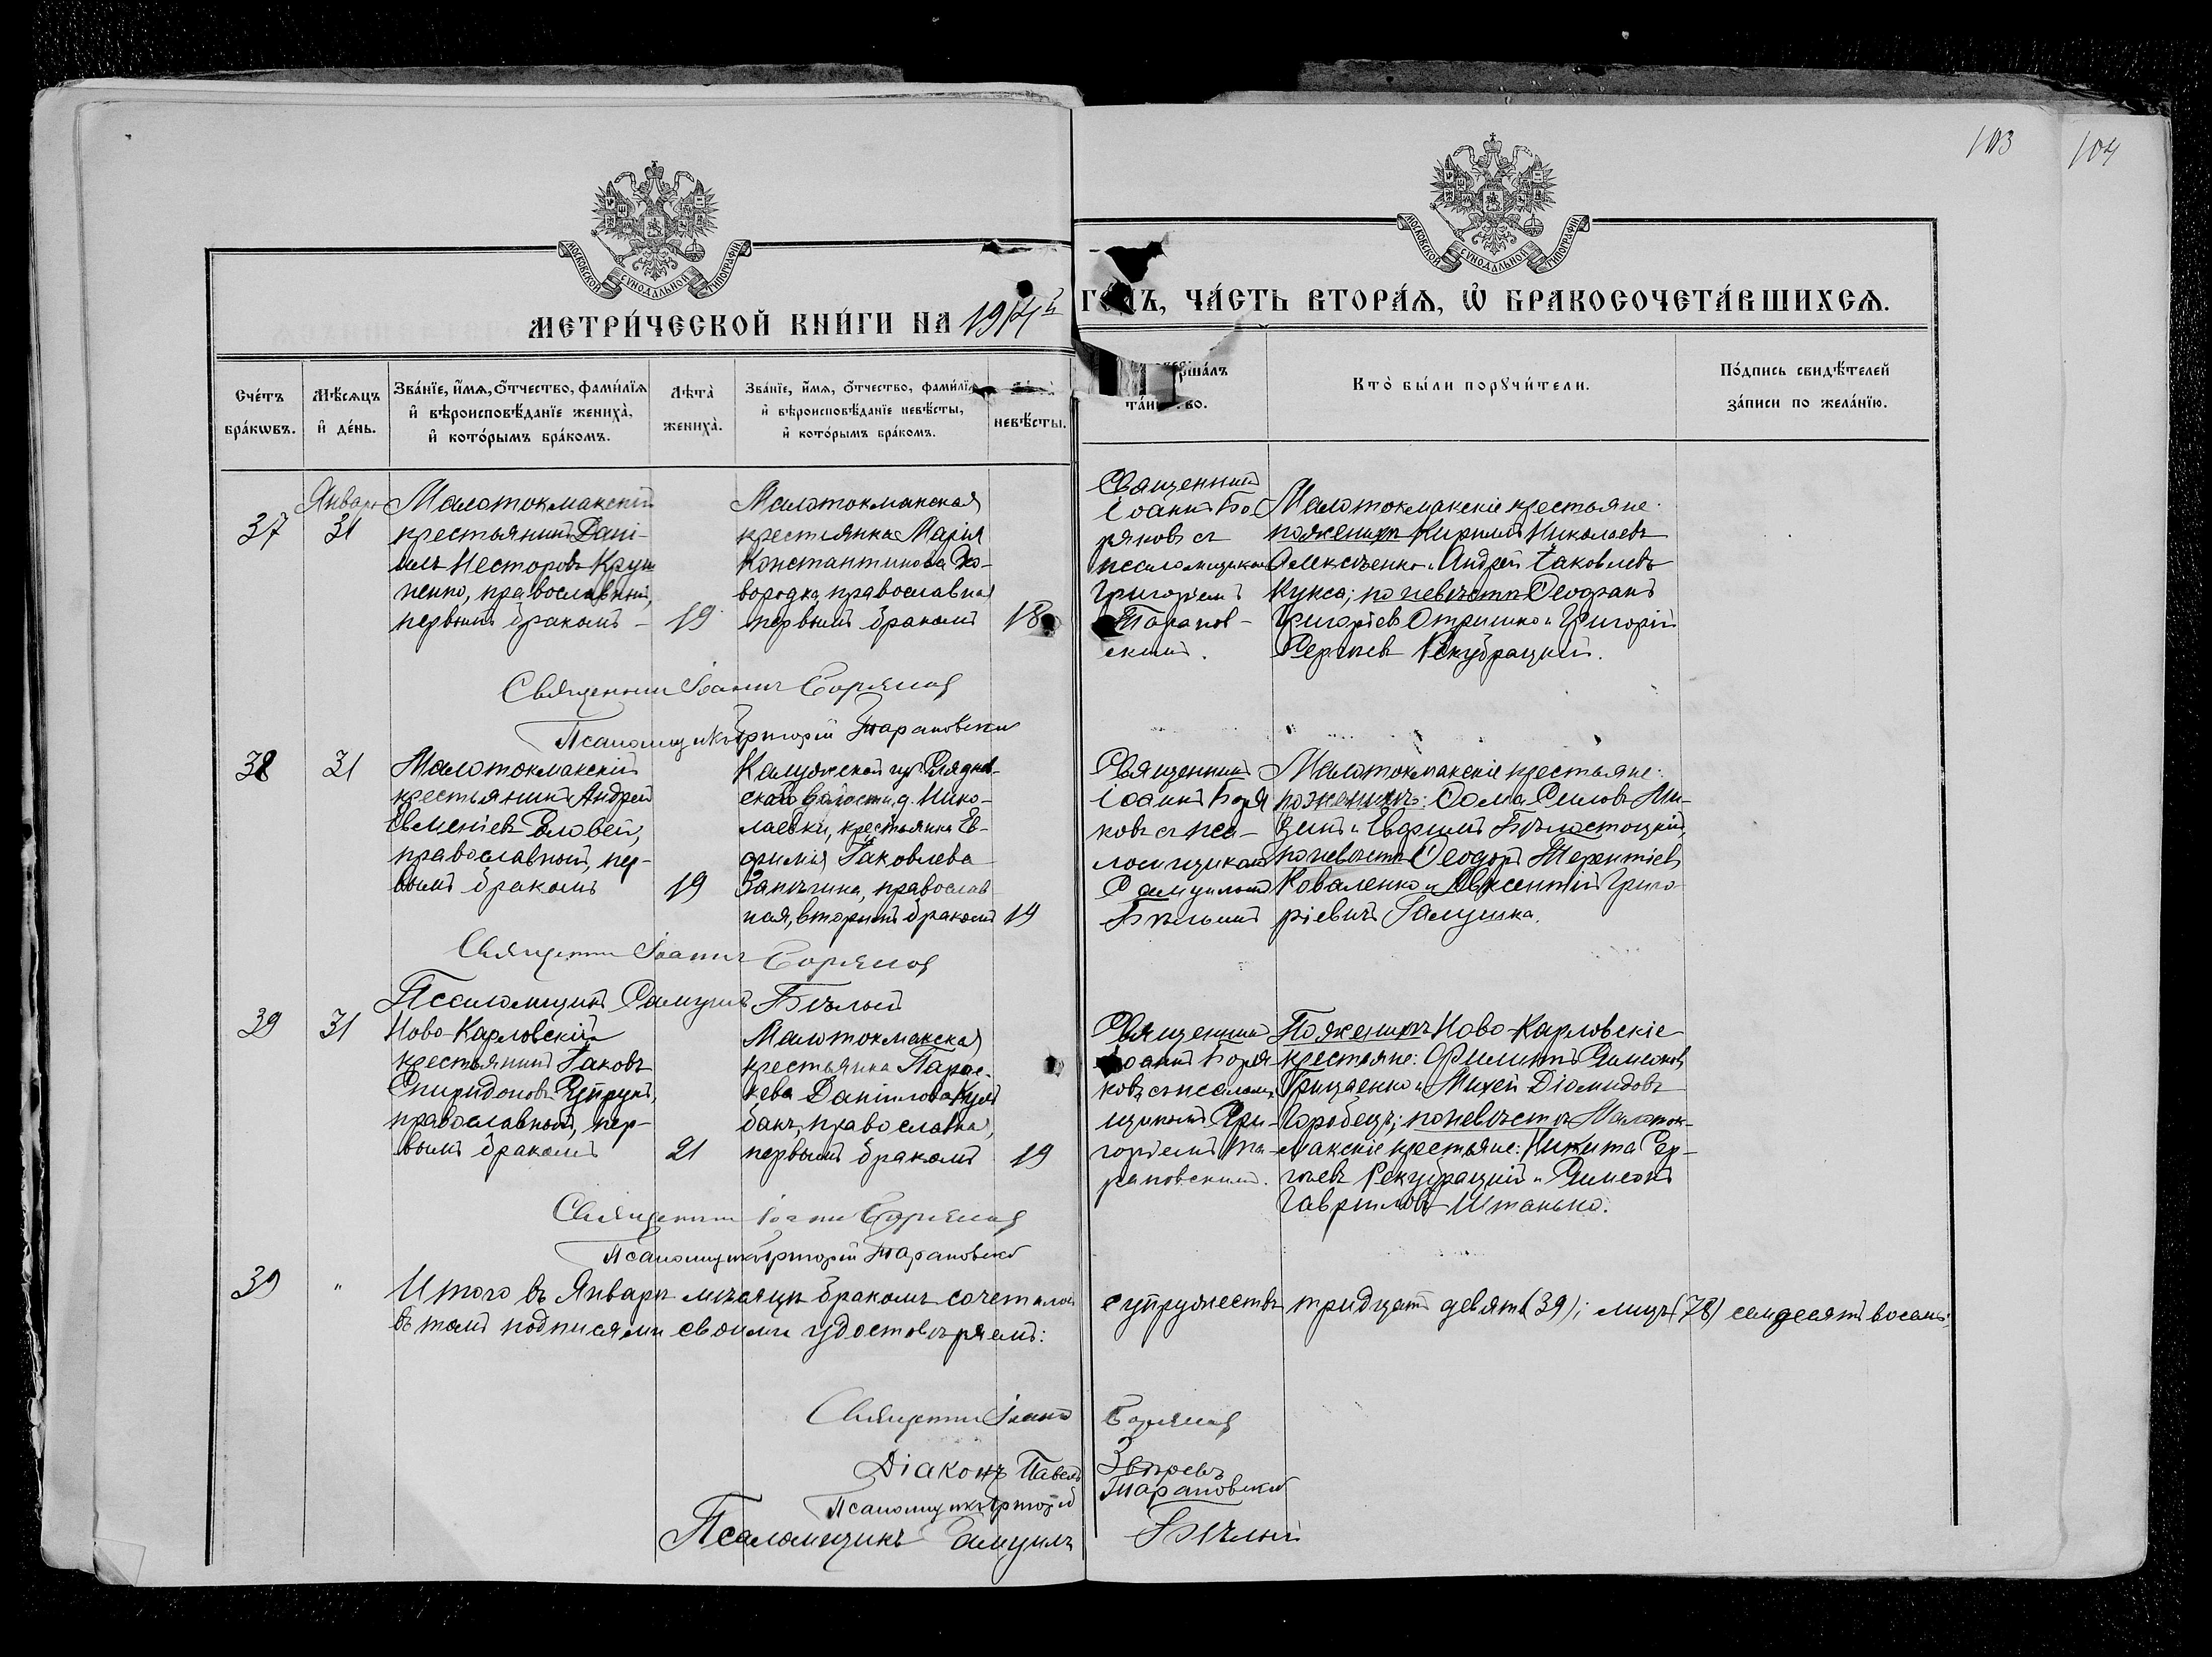 103
104
МОСКОВСКОЙ СУНОДАЛЬНОЙ ТИПОГРАФІИ
МОСКОВСКОЙ СУНОДАЛЬНОЙ ТИПОГРАФІИ
МЕТРИ́ЧЕСКОЙ КНИ́ГИ НА 1914й
ЧА́СТЬ ВТОРА́Я, Ѡ҆ БРАКОСОЧЕТА́ВШИХСЯ.
Сче́тъ бра́кѡвъ.
Мѣ́сяцъ и҆ де́нь.
Зва́нїе, и҆́мя, ѻ҆́тчество, фами́лїя
и҆ вѣроисповѣ́данїе жениха̀,
и҆ кото́рымъ бра́комъ.
Лѣта̀ жениха̀.
Зва́нїе, и҆́мя, ѻ҆́тчество, фами́лїя
и҆ вѣроисповѣ́данїе невѣ́сты,
и҆ кото́рымъ бра́комъ.
невѣ́сты.
Кто̀ бы́ли порꙋчи́тели.
По́дпись свидѣ́телей
за́писи по жела́нїю.
37
Январь
31
Малотокмакскій
крестьянинъ Дані-
илъ Несторовъ Крун
ненко, православный,
первымъ бракомъ -
19
Малотокмакская
крестьянка Марія
Константинова Ско-
вородка, православная
первымъ бракомъ
18
Священникъ
Іоаннъ Бо-
ряковъ съ
псаломщикомъ
Григоріемъ
Таранов-
скимъ.
Малотокмакскіе крестьяне:
по женихѣ Кириллъ Николаевъ
Алексѣенко и Андрей Іаковлевъ
Кукса; по невѣстѣ Ѳеофанъ
Григоріевъ Отришко и Григорій
Сергіевъ Рекубрацкій.
Священникъ Іоаннъ Боряковъ
Псаломщикъ Григорій Тарановскій
38
31
Малотокмакскій
крестьянинъ Андрей
Евменіевъ Головей,
православный, пер-
вымъ бракомъ
19
Калужской губ.
волости, д. Нико-
лаевки, крестьянка Ев-
фимія Іаковлева
православ-
ная, вторымъ бракомъ
19
Священникъ
Іоаннъ Боря
ковъ съ пса-
ломщикомъ
Самуиломъ
Бѣлымъ
Малотокмакскіе крестьяне:
по женихѣ: Ѳома Силовъ Ли-
и Евфимъ Бѣлостоцкій,
по невѣстѣ Ѳеодоръ Терентіевъ
Коваленко и Авксентій Григо-
ріевичъ Галушка.
Священникъ Іоаннъ Боряковъ
Псаломщикъ Самуилъ Бѣлый
39
31
Ново-Карловскій
крестьянинъ Іаковъ
Спиридоновъ Чупрунъ,
православный, пер-
вымъ бракомъ
21
Малотокмакская
крестьянка Парас-
кева Даніилова Кул
бака, православная,
первымъ бракомъ
19
Священникъ
Іоаннъ Боря-
ковъ съ псалом-
щикомъ Гри-
горіемъ Та-
рановскимъ.
По женихѣ Ново-Карловскіе
крестьяне: Филиппъ Симеоновъ
Грицаенко и Михей Діомидовъ
Горобецъ; по невѣстѣ Малоток-
макскіе крестьяне: Никита Сер-
гіевъ Рекубрацкій и Симеонъ
Гавриловъ Штанько.
Священникъ Іоаннъ Боряковъ
Псаломщикъ Григорій Тарановскій
39
"
Итого въ Январѣ мѣсяцѣ бракомъ сочеталось супружествъ тридцать девять (39); лицъ (78) семдесятъ восемь;
въ томъ подписями своими удостовѣряемъ:
Священникъ Іоаннъ Боряковъ
Діаконъ Павелъ Звѣревъ
Псаломщикъ Григорій Тарановскій
Псаломщикъ Самуилъ Бѣлый